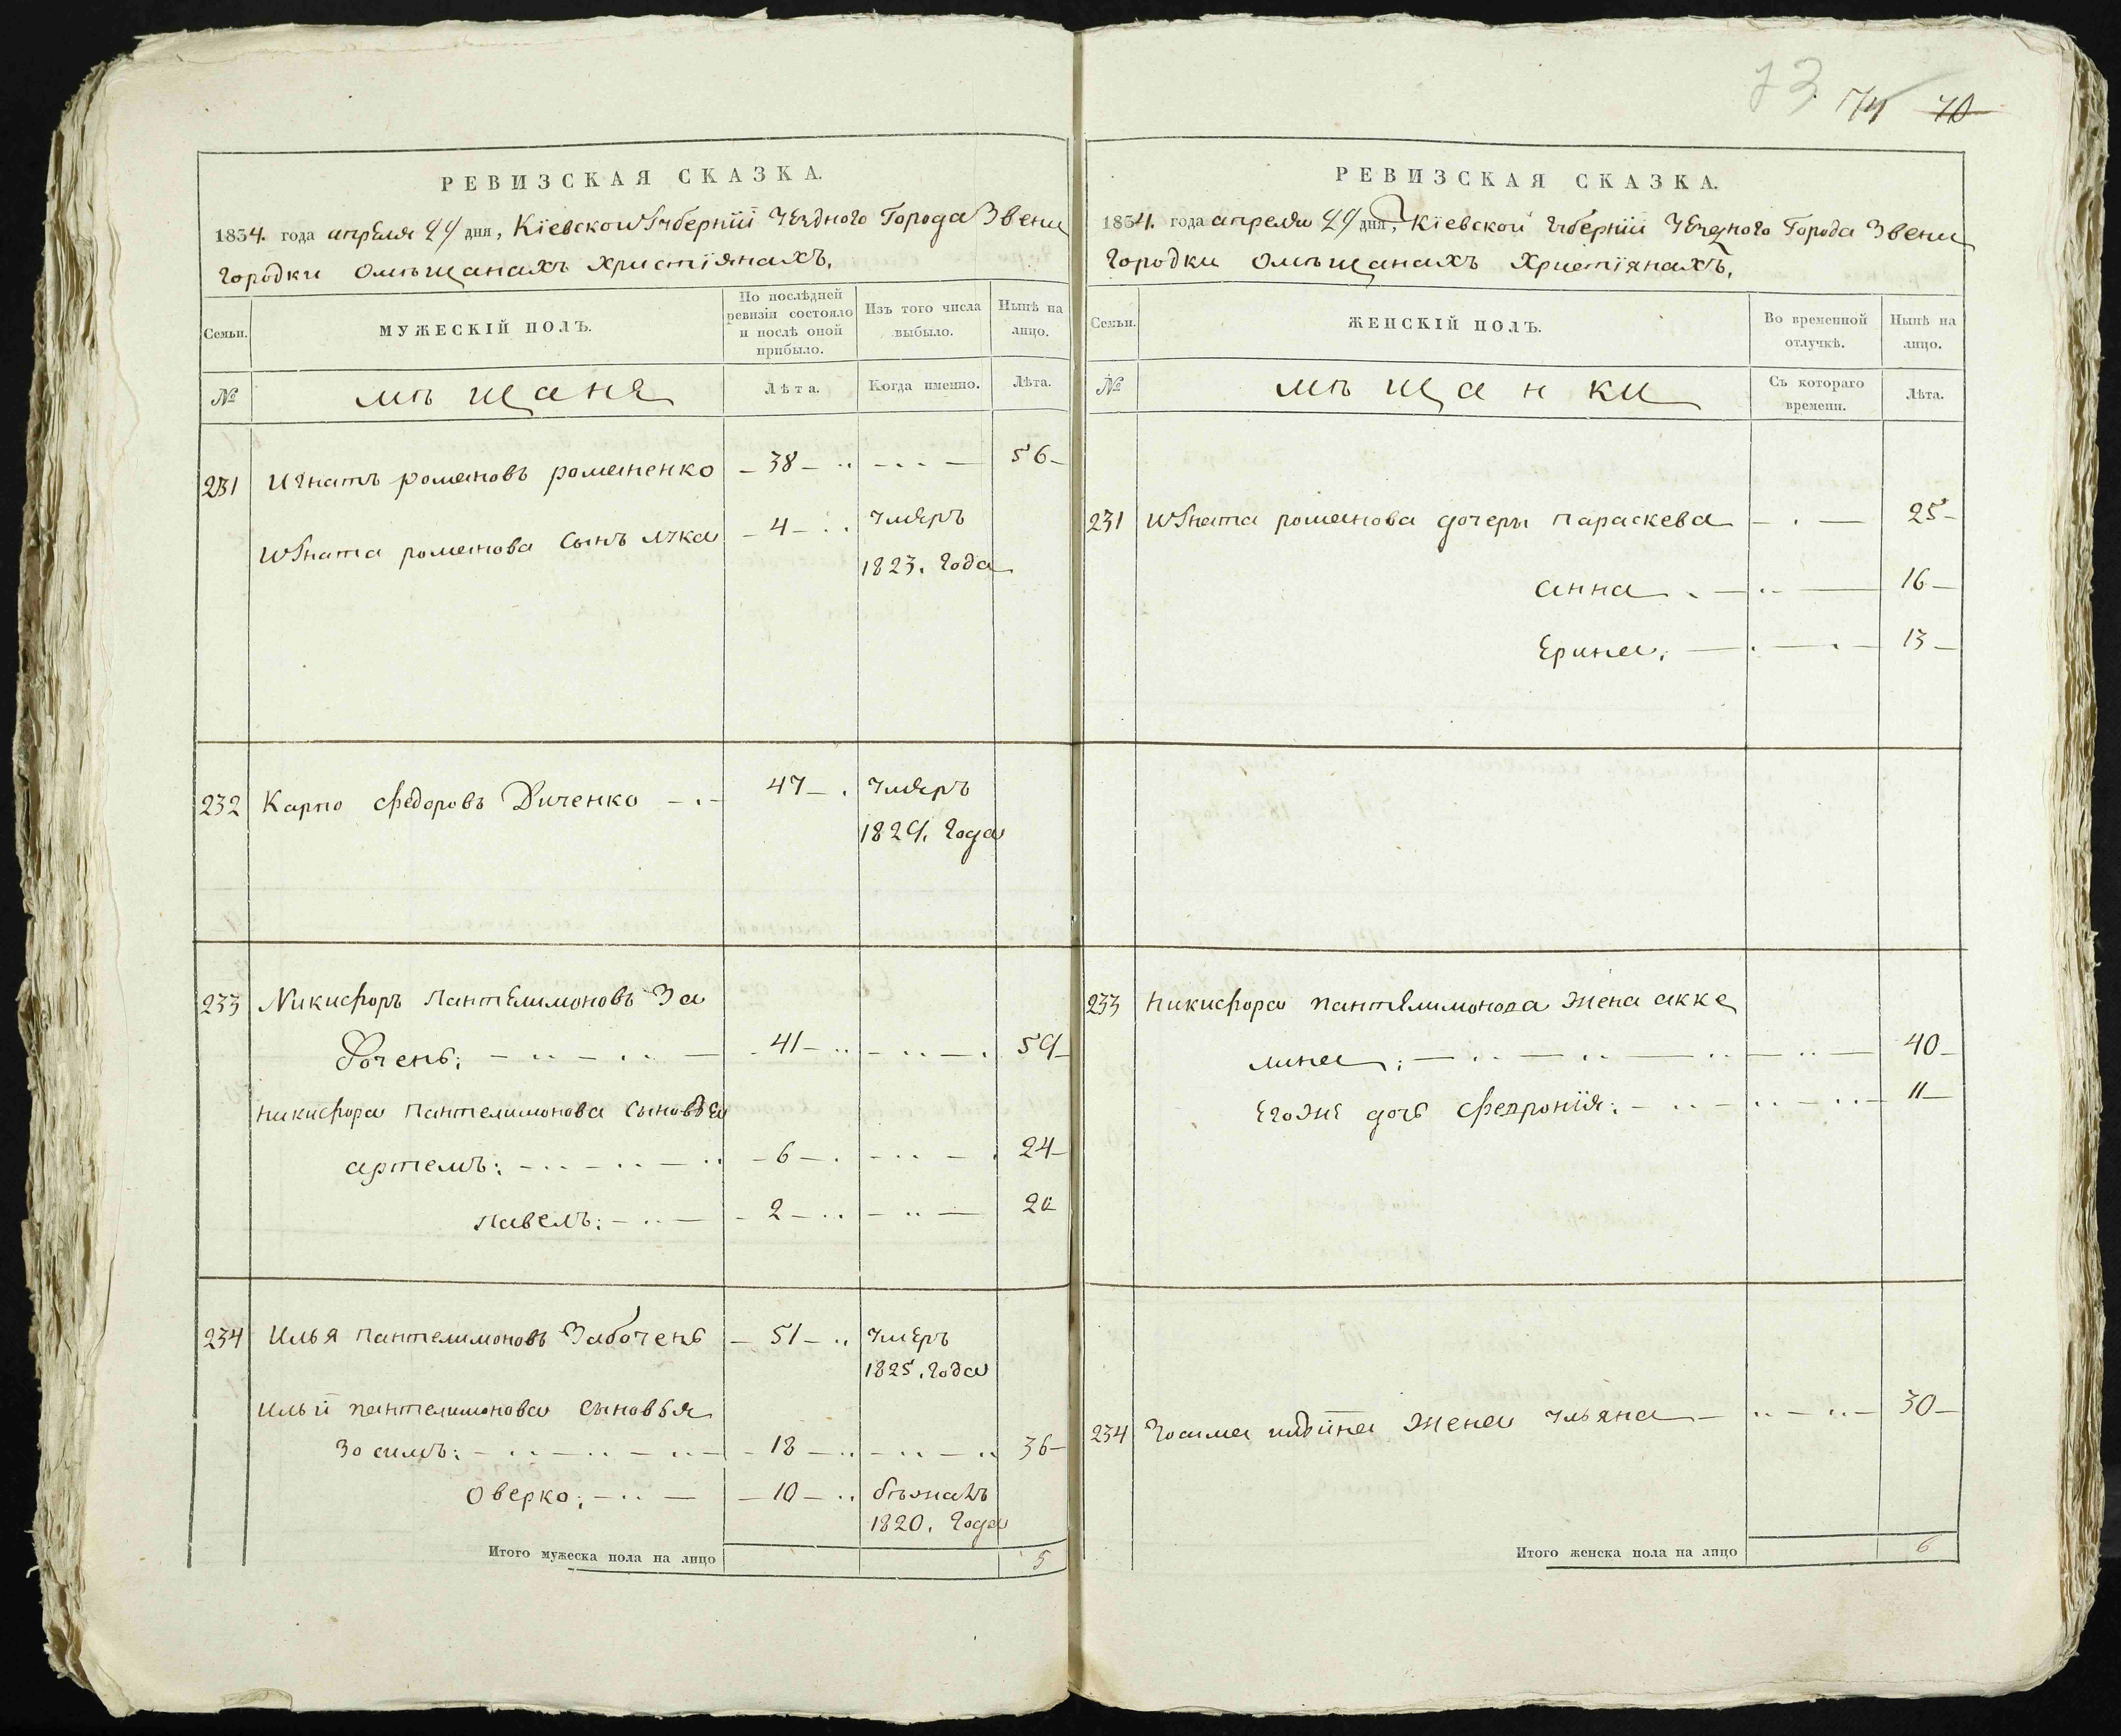 73 74 70
РЕВИЗСКАЯ СКАЗКА.
1834. года апреля 29 дня, Кіевской Губерніи Уезднаго Города Звени
городки Омѣщанахъ християнахъ.
Семьи. МУЖЕСКІЙ ПОЛЪ. По послѣдней ревизіи состояло и послѣ оной прибыло. Изъ того числа выбыло. Нынѣ на лицо.
№ мѣщаня Лѣта. Когда именно. Лѣта.
231 Игнатъ романовъ романенко 38 56
Игната романова сынъ лука 4 умеръ
1823. года
232 Карпо федоровъ Диченко 47 умеръ
1829. года
233 Никифоръ пантелимоновъ За
бочень: 41 59
никифора пантелимонова сыновья
артемъ: 6 24
павелъ: 2 20
234 Илья пантелимоновъ Забочень 51 умеръ
1825. года
Ильи пантелимонова сыновья
Зосимъ: 18 36
Оверко: 10 бѣжалъ
1820. года
Итого мужеска пола на лицо 5
РЕВИЗСКАЯ СКАЗКА.
1834. года апреля 29 дня, Кіевской губерніи Уезднаго Города Звени
городки Омѣщанахъ Християнахъ.
Семьи. ЖЕНСКІЙ ПОЛЪ. Во временной отлучкѣ. Нынѣ на лицо.
№ мѣщанки Съ котораго времени. Лѣта.
231 Игната романова дочеры параскева 25
анна 16
Ерина. 13
233 никифора пантелимонова жена акке
лина: 40
Егоже дочь февронія: 11
234 жена ульяна 30
Итого женска пола на лицо 6